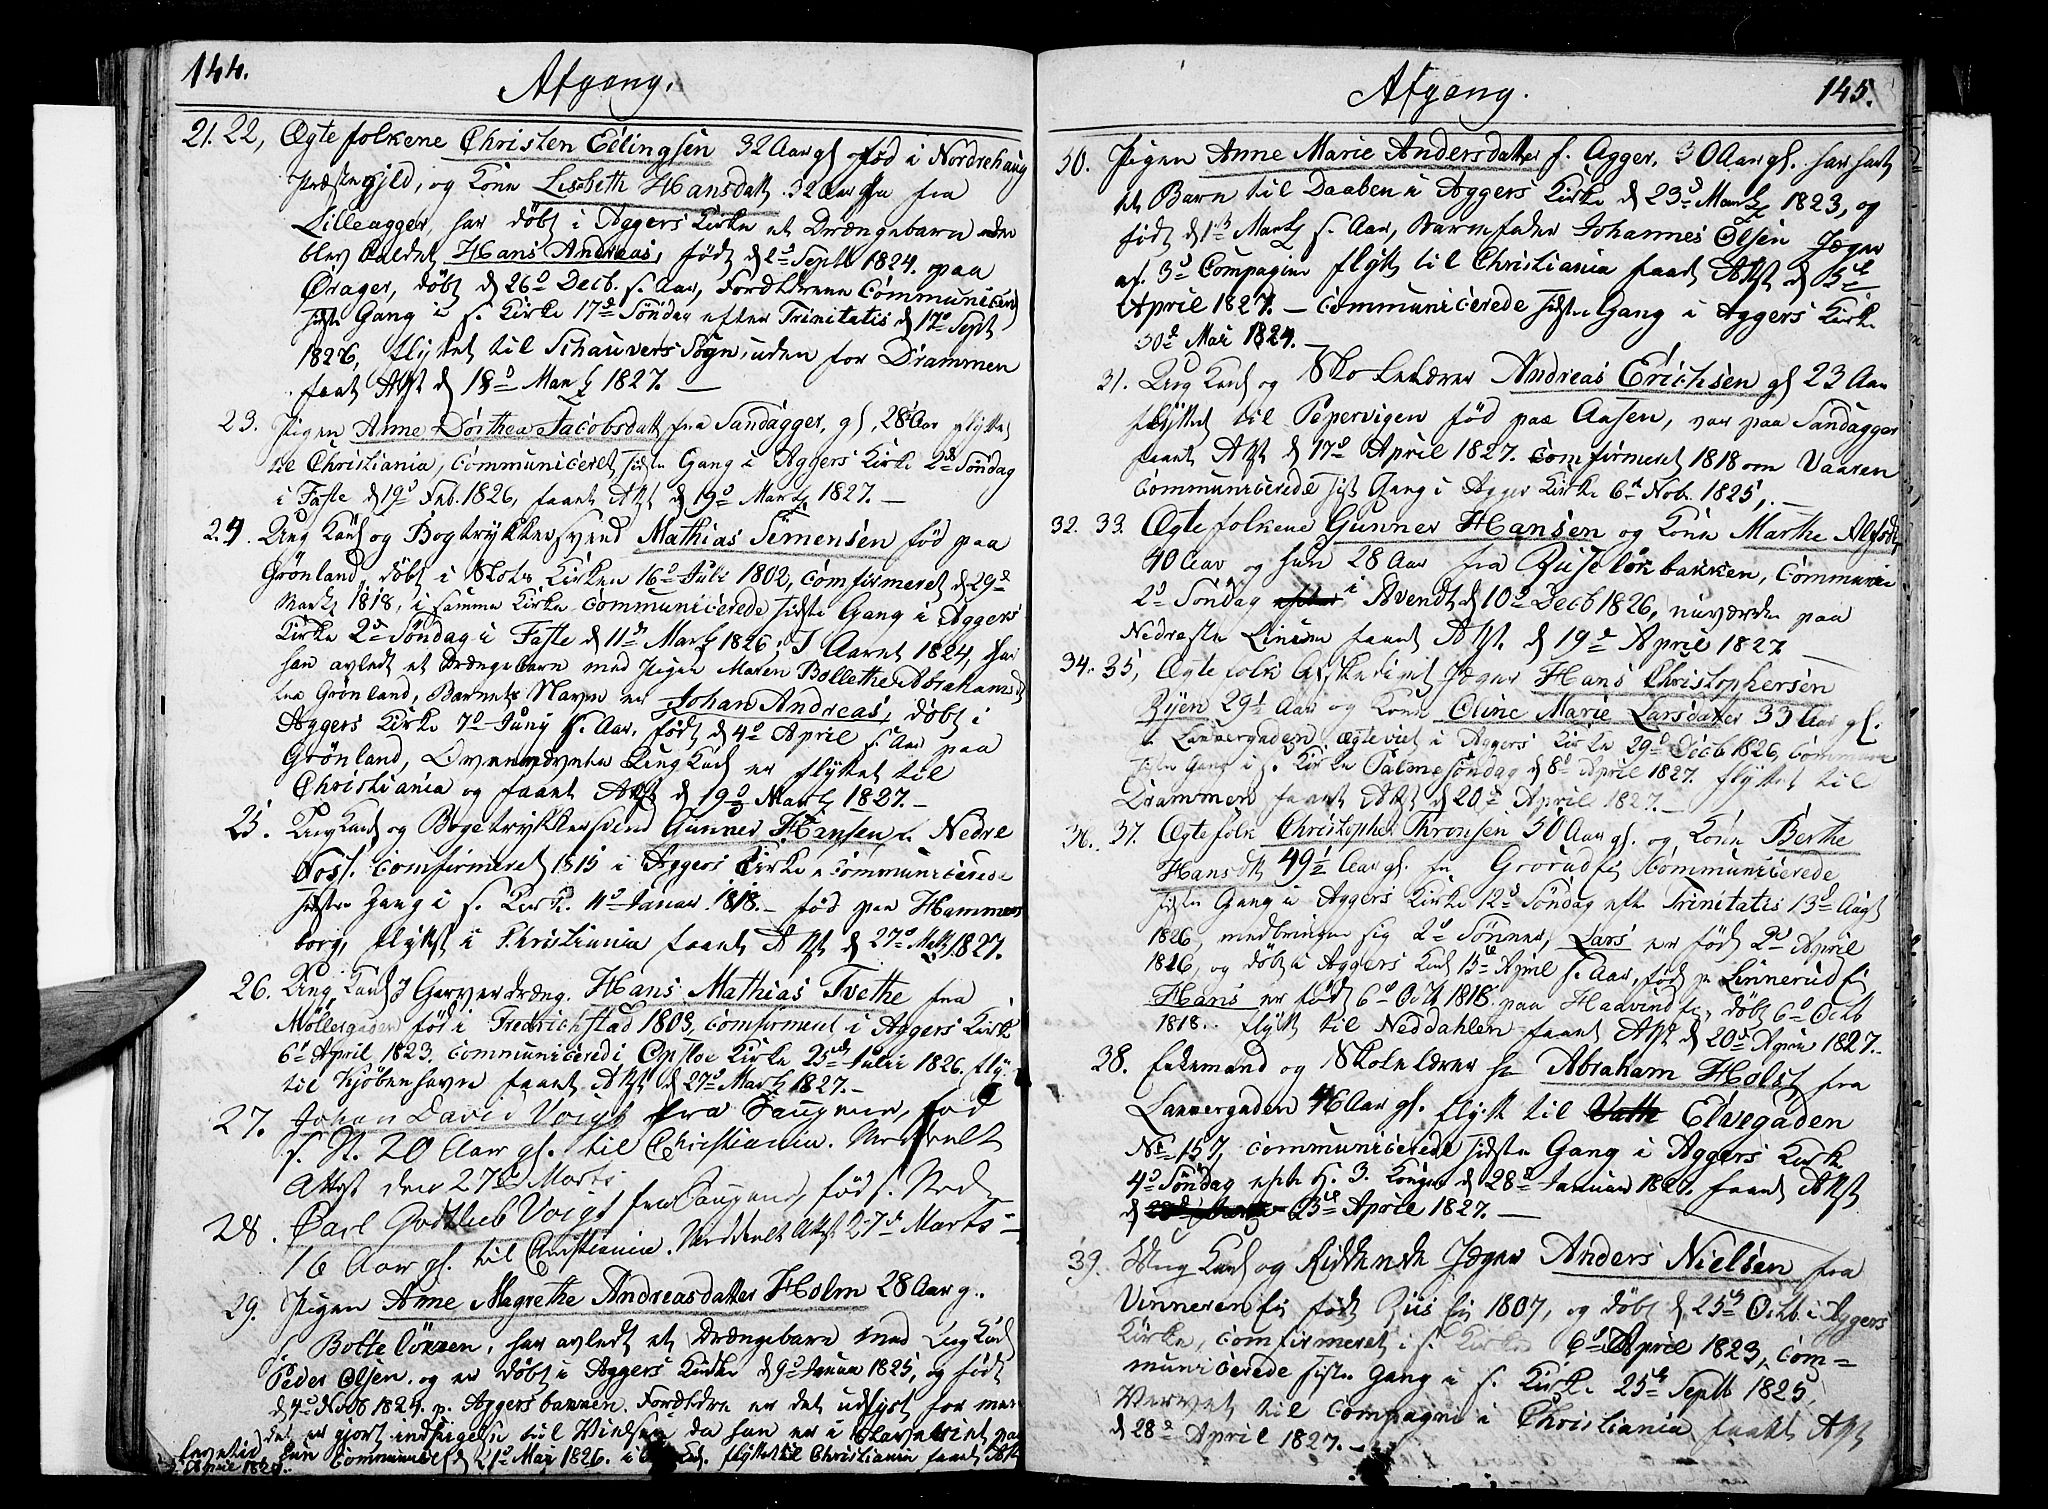 144.
Afgang.
21. 22, Ægtefolkene Christen Edlingsen 32 Aar gl født i Nordrehaug
Præstegjeld, og Kone Lisabeth Hansdatt 32 Aar fra
Lilleagger, har døbt i Aggers Kirke et Drængebarn
blev kaldet Hans Andreas, født d 2d Septb 1824. paa
Ørager, døbt d 26d Decb. s. Aar, Forældrene Communicered
sidste Gang i s. Kirke 17de Søndag efter Trinitatis d 17d Sept
1826, flyttet til Schauvers Sogn, uden for Drammen
faaet Attst d 18d Martz 1827. —
23. Pigen Anne Dorthea Jacobsdatt fra Sandagger, gl, 28 Aar flyttet
til Christiania, Communiceret sidste Gang i Aggers Kirke 2d Søndag
i Faste d 19d Feb. 1826, faaet Attst d 19d Martz 1827. —
24. Ung Karl og Bogtrykkersvend Mathias Simensen fød paa
Grønland, døbt i Slots Kirken 16d Juli 1802, Comfirmeret d 29d
Martz 1818, i samme Kirke Communicerede sidste Gang i Aggers
Kirke 2d Søndag i Faste d 11d Martz 1826; I Aaret 1824, har
han avledt et Drængebarn med Pigen Maren Bollethe Abrahamsd
fra Grønland, Barnets Navn er Johan Andreas, døbt i
Aggers Kirke 7d Juny s. Aar, født d 4d April s. Aar paa
Grønland, Ovennævnte Ung Karl er flyttet til
Christiania og faaet Attst d 19d Martz 1827. —
25. Ung Karl og Bogetrykkersvend Gunner Hansen f. Nedre
Foss. Comfirmeret 1815 i Aggers Kirke Communicerede
sidste Gang i s. Kirke. 4d Januar. 1818. — fød paa Hammers
borg, flyttet i Christiania faaet Attst d 27d Martz 1827.
26. Ung Karl Garverdræng. Hans Mathias Tvethe fra
Møllergaden fød i Fredrichstad 1803, Comfirmeret i Aggers Kirke
6d April 1823. Communicered i Opsloe Kirke 25de Julii 1826. flyt
til Kjøbenhavn faaet Attst d 27d Martz 1827. —
27. Johan David Voigt fra Saugene, fød
s. St. 20 Aar gl. til Christiania. Meddeelt
Attest den 27d Marts
28. Carl Gottlieb Voigt fra Saugene, fød s. Sted
16 Aar gl. til Christiania. Meddeelt Attst 27d Marts —
29. Pigen Anne Magrethe Andreasdatter Holm 28 Aar g.
Bottelökken, har avledt et Drængebarn med Ung Karl
Peder Olsen. og er døbt i Aggers Kirke d 9d Januar 1825, og født
d 4d Novb 1824. p. Aggersbakken. Forældre er det udlyst for men
det er gjort indsigelse til Vielsen da han er i Slaveriet paa
hun Communicel d 21d Mai 1826. i flyttet til Christiania faaet Attst
April 1827.
Afgang.
145.
30. Pigen Anne Marie Andersdatter f. Agger. 30 Aar gl. har havt
et Barn til Daaben i Aggers Kirke d 23d Martz 1823, og
født d 1d Martz s. Aar, Barnefader Johannes Olsen Jæger
af. 3d Compagnie flytt til Christiania faaet Attst d 5te
April 1827. — Communicerede sidste Gang i Aggers Kirke
30d Mai 1824. —
31. Ung Karl og Skolelærer Andreas Erichsen gl 23 Aar
flyttet til Pepervigen fød paa Aasen, var paa Sandagger
faaet Attst d 17d April 1827. Comfirmeret 1818 om Vaaren
Communicerede sidst Gang i Agger Kirke 6d Nob. 1825, —
32. 33. Ægtefolkene Gunner Hansen og Kone Marthe Alfsdt
40 Aar og hun 28 Aar fra Ruseløkbakken, Communice
2d Søndag i Avendt d 10d Decb 1826, nuværende paa
Nedreste Linum faaet Attst. d 19d April 1827 —
34. 35, Ægtefolk Afskediget Jæger Hans Christophersen
Ryen 29½ Aar og Kone Oline Marie Larsdatter 33 Aar gl.
i Lakkergaden ægteviet i Aggers Kirke 29d Decb 1826, Commun
sidste Gang i s. Kirke Palmesøndag d 8d April 1827. flyttet til
Drammen faaet Attst d 20d April 1827. —
36. 37. Ægtefolk Christopher Thronsen 50 Aar gl. og Kone Berthe
Hansdtt 49½ Aar gl. fra Grorud Communicerede
sidste Gang i Aggers Kirke 12d Søndag eft Trinitatis 13d Augt
1826, medbringer sig 2d Sønner, Lars er fød 2d April
1816, og døbt i Aggers Kirke 15de April s. Aar, fød p. Linnerud
Hans er født 6d Octb 1818 paa Haavind døbt 6d Octb
1818. flytt til Neddahlen faaet Attst d 20d April 1827.
38. Enkemand og Skolelærer Hr Abraham Holst fra
Lakkergaden 46 Aar gl. flytt til Elvegaden
No 157, Communicerede sidste Gang i Aggers Kirke
4d Søndag epth H. 3. Konger d 28d Januar faaet Attst
d 23de April 1827. —
39. Ung Karl og Ridende Jæger Anders Nielsen fra
Vinneren født 1807, og døbt d 25d Octb. i Aggers
Kirke, Comfirmeret i s. Kirke 6d April 1823, Com-
municerede sidste Gang i s. Kirke 25d Septb 1825,
Vervet til Compagni i Christiania faaet Attst
d 28d April 1827. —